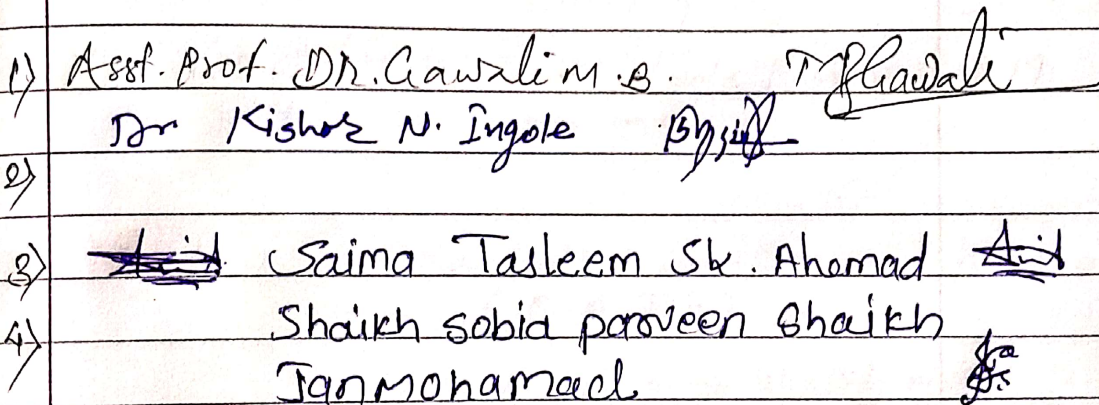 1) Asst. Prof. Dr. Gawali M.B. MBGawali
Dr Kishor N. Ingole
2)
3) Saima Tasleem Sk. Ahemad
4) Shaikh Sobia parveen Shaikh
Janmohamad